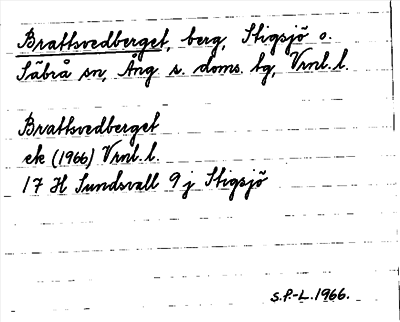 Brattsvedberget, berg, Stigsjö o.
Säbrå sn, Ång s. doms. tg, Vrnl. l.
Brattsvedberget
ek (1966) Vrnl. l.
17 H Sundsvall 9 j Stigsjö
S.P.-L. 1966.